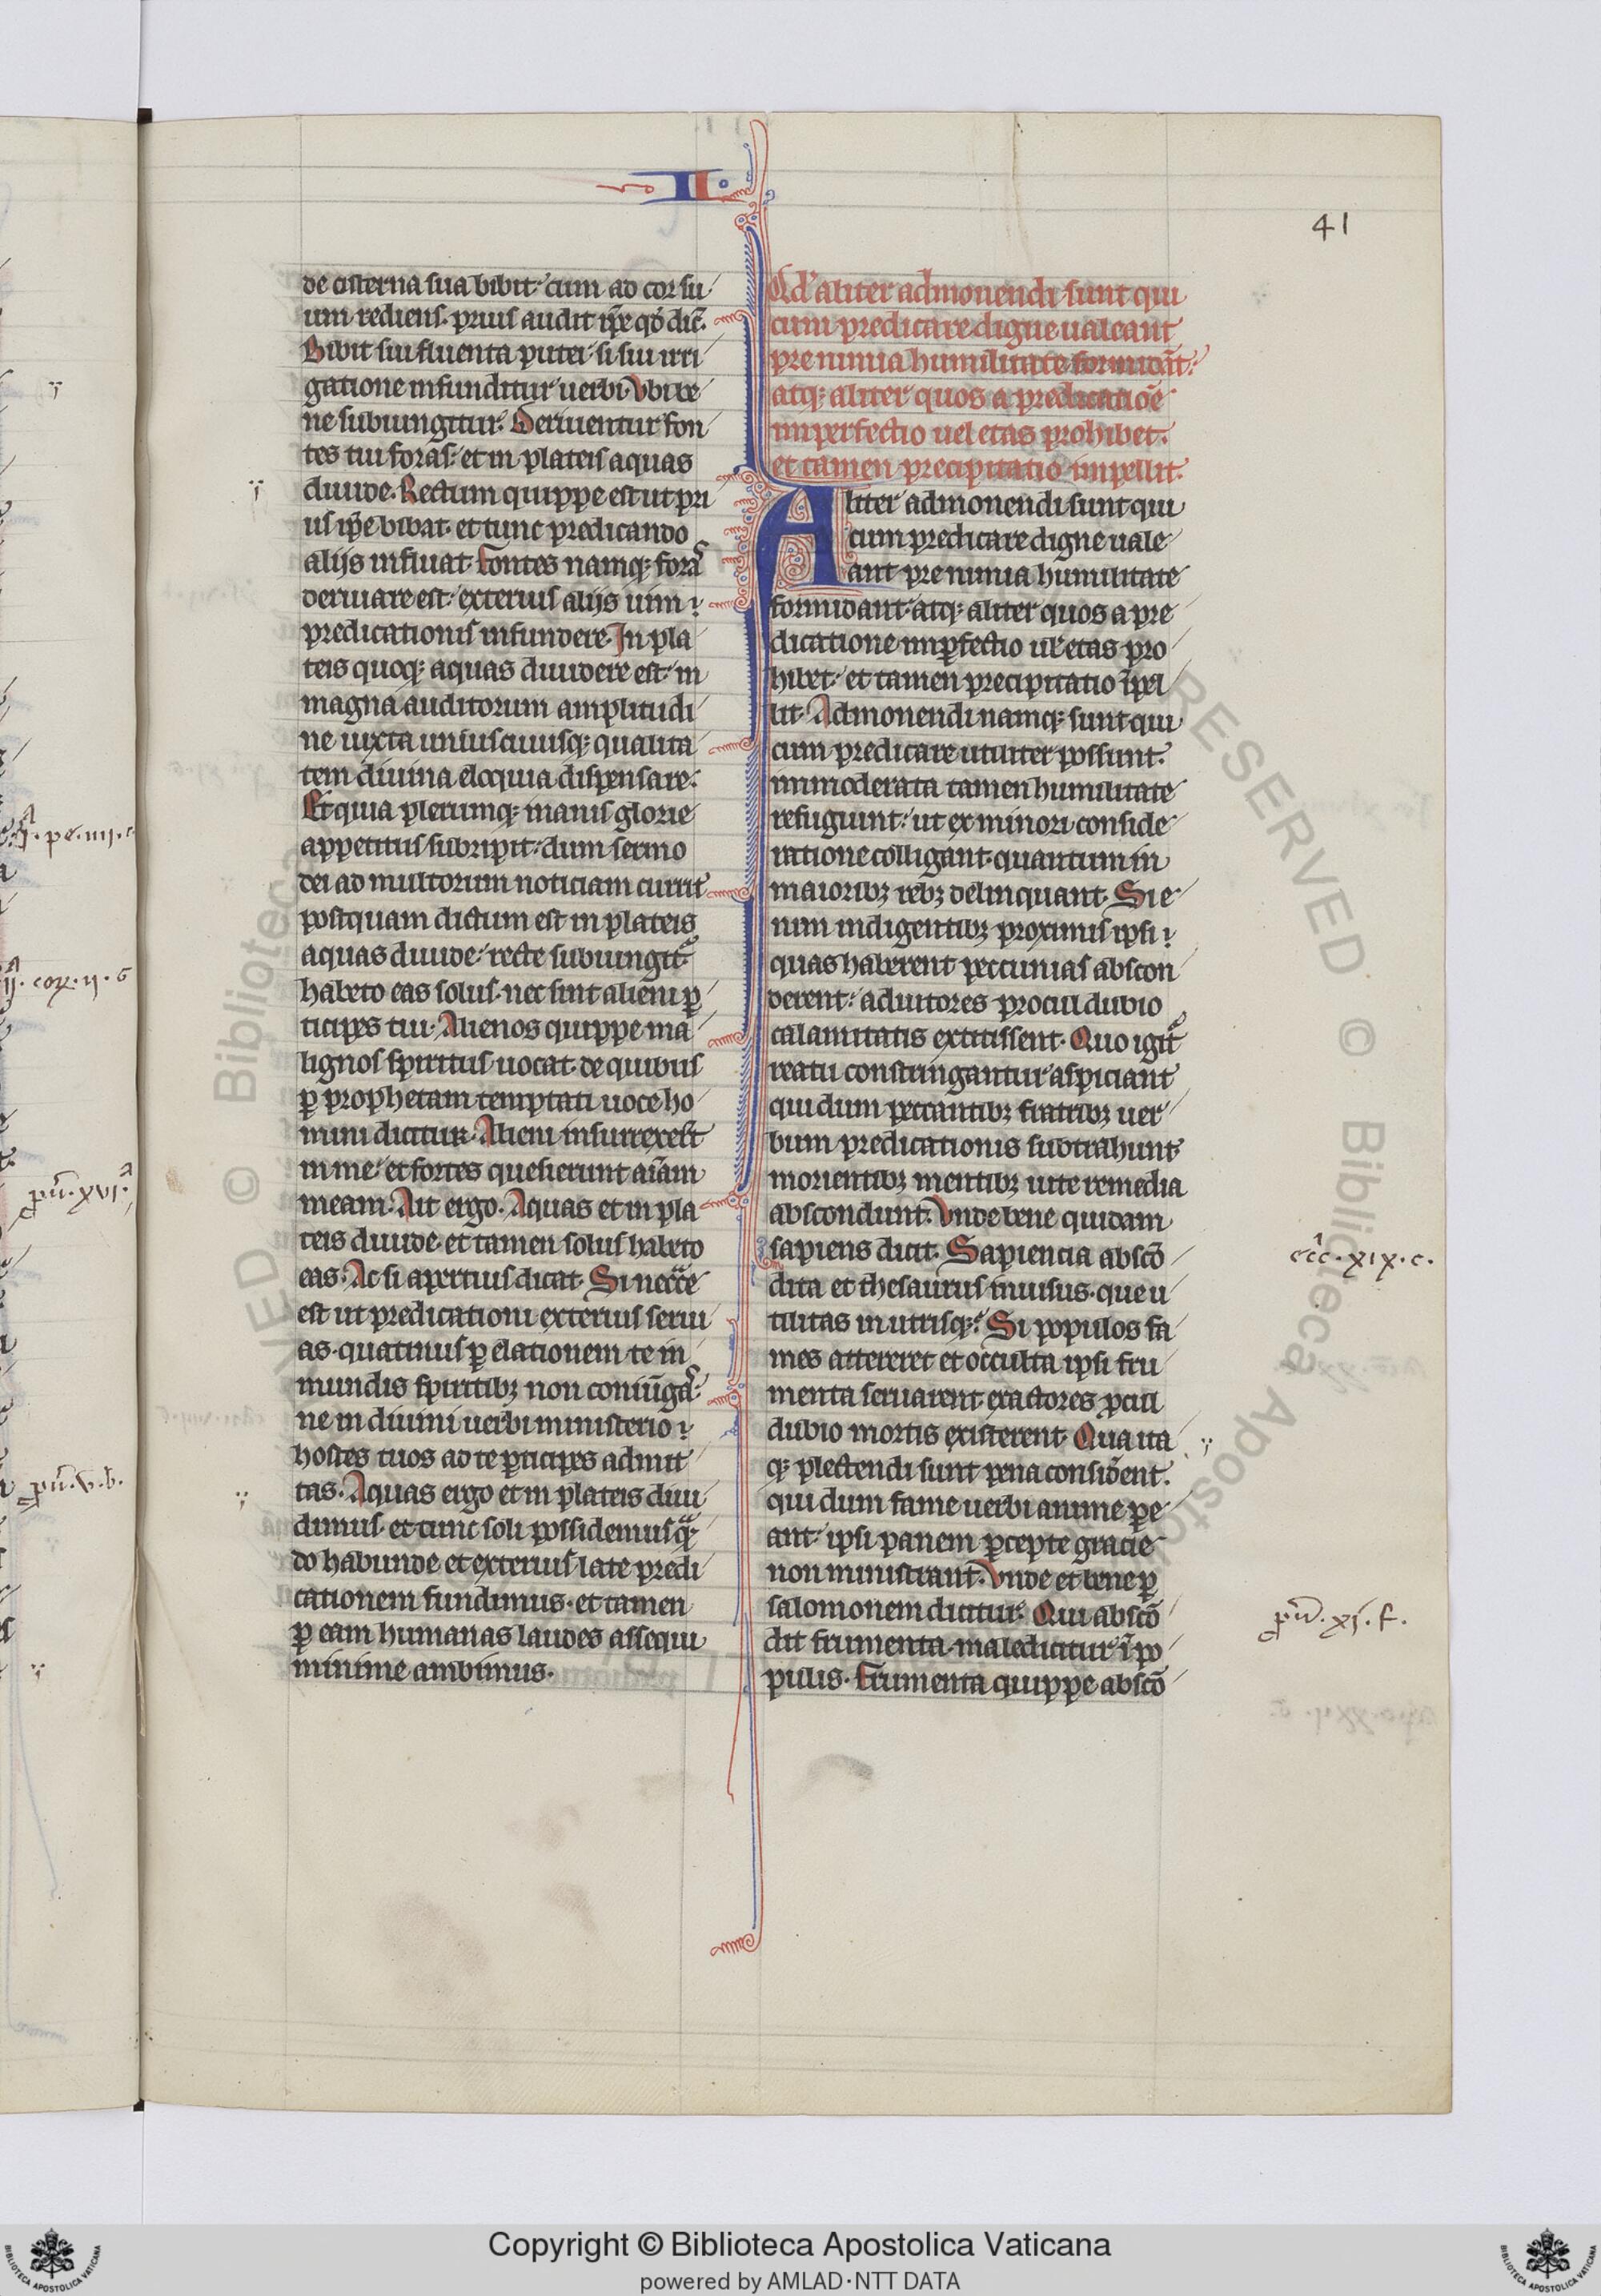 II.
41
de cisterna sua bibit. cum ad cor su
um rediens. prius audit ip̄e qd̄ dic̄.
Bibit sui fluenta putei. si sui irri
gatione infunditur uerbi. Vbi be
ne subiungitur. Deriuentur fon
tes tui foras. et in plateis aquas
diuide. Rectum quippe est ut pri
us ip̄e bibat. et tunc predicando
alijs influat. Fontes namq; foras
deriuare est. exterius alijs uim
predicationis infundere. In pla
teis quoq; aquas diuidere est. in
magna auditorum amplitudi
ne iuxta uniuscuiusq; qualita
tem diuina eloquia dispensare.
Et quia plerumq; inanis glorie
appetitus subripit. dum sermo
dei ad multorum noticiam currit
postquam dictum est in plateis
aquas diuide. recte subiungit᷑
habeto eas solus. nec sint alieni ꝑ
ticipes tui. Alienos quippe ma
lignos spiritus uocat. de quibus
ꝑ prophetam temptati uoce ho
minis dicitur. Alieni insurrexer̄t
in me. et fortes quesierunt aīam
meam. Ait ergo. Aquas et in pla
teis diuide et tamen solus habeto
eas. Ac si apertius dicat. Si necc̄e
est ut predicationi exterius serui
as. quatinus ꝑ elationem te in
mundis spiritibꝫ non coniūgas.
ne in diuini uerbi ministerio
hostes tuos ad te ꝑticipes admit
tas. Aquas ergo et in plateis diui
dimus. et tunc soli possidemus. qn̄
do habunde et exterius late predi
cationem fundimus. et tamen
ꝑ eam humanas laudes assequi
minime ambimus.
Qd̓ aliter admonendi sunt qui
cum predicare digne ualeant
pre nimia humilitate formidāt.
atq; aliter quos a predicatiōe
imperfectio uel etas prohibet.
et tamen precipitatio impellit.
Aliter admonendi sunt qui
cum predicare digne uale
ant pre nimia humilitate
formidant. atq; aliter quos a pre
dicatione imꝑfectio ul̓ etas pro
hibet. et tamen precipitatio īpel
lit. Admonendi namq; sunt qui
cum predicare utiliter possunt.
immoderata tamen humilitate
refugiunt. ut ex minori conside
ratione colligant. quantum in
maioribꝫ rebꝫ delinquant. Si e
nim indigentibꝫ proximis ipsi
quas haberent peccunias abscon
derent. adiutores procul dubio
calamitatis extitissent. Quo igit᷑
reatu constringantur aspiciant
qui dum peccantibꝫ fratribꝫ uer
bum predicationis subtrahunt
morientibꝫ mentibꝫ uite remedia
abscondunt. Vnde bene quidam
sapiens dicit. Sapiencia abscō
dita et thesaurus inuisus. que u
tilitas in utrisq;. Si populos fa
mes attereret et occulta ipsi fru
menta seruarent. exactores ꝓcul
dubio mortis existerent. Qua ita
q; plectendi sunt pena considēent.
qui dum fame uerbi anime pe
ant. ipsi panem ꝑcepte gracie
non ministrant. Vnde et bene ꝑ
salomonem dicitur. Qui abscō
dit frumenta. maledicitur ī po
pulis. Frumenta quippe abscō
ecc̄c. xix. c.
pū. xi. f.
i. pe. iiii.
ii. cor. ii. G
pū. xvi.
pū. v. b.
RESERVED © Biblioteca Apostolica
© Biblioteca
Copyright © Biblioteca Apostolica Vaticana
powered by AMLAD·NTT DATA
BIBLIOTECA APOSTOLICA VATICANA
BIBLIOTECA APOSTOLICA VATICANA